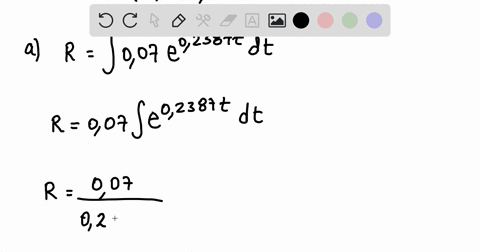 a) R = ∫ 0,07 e^{0,2387t} dt
R = 0,07 ∫ e^{0,2387t} dt
R = 0,07 / 0,2